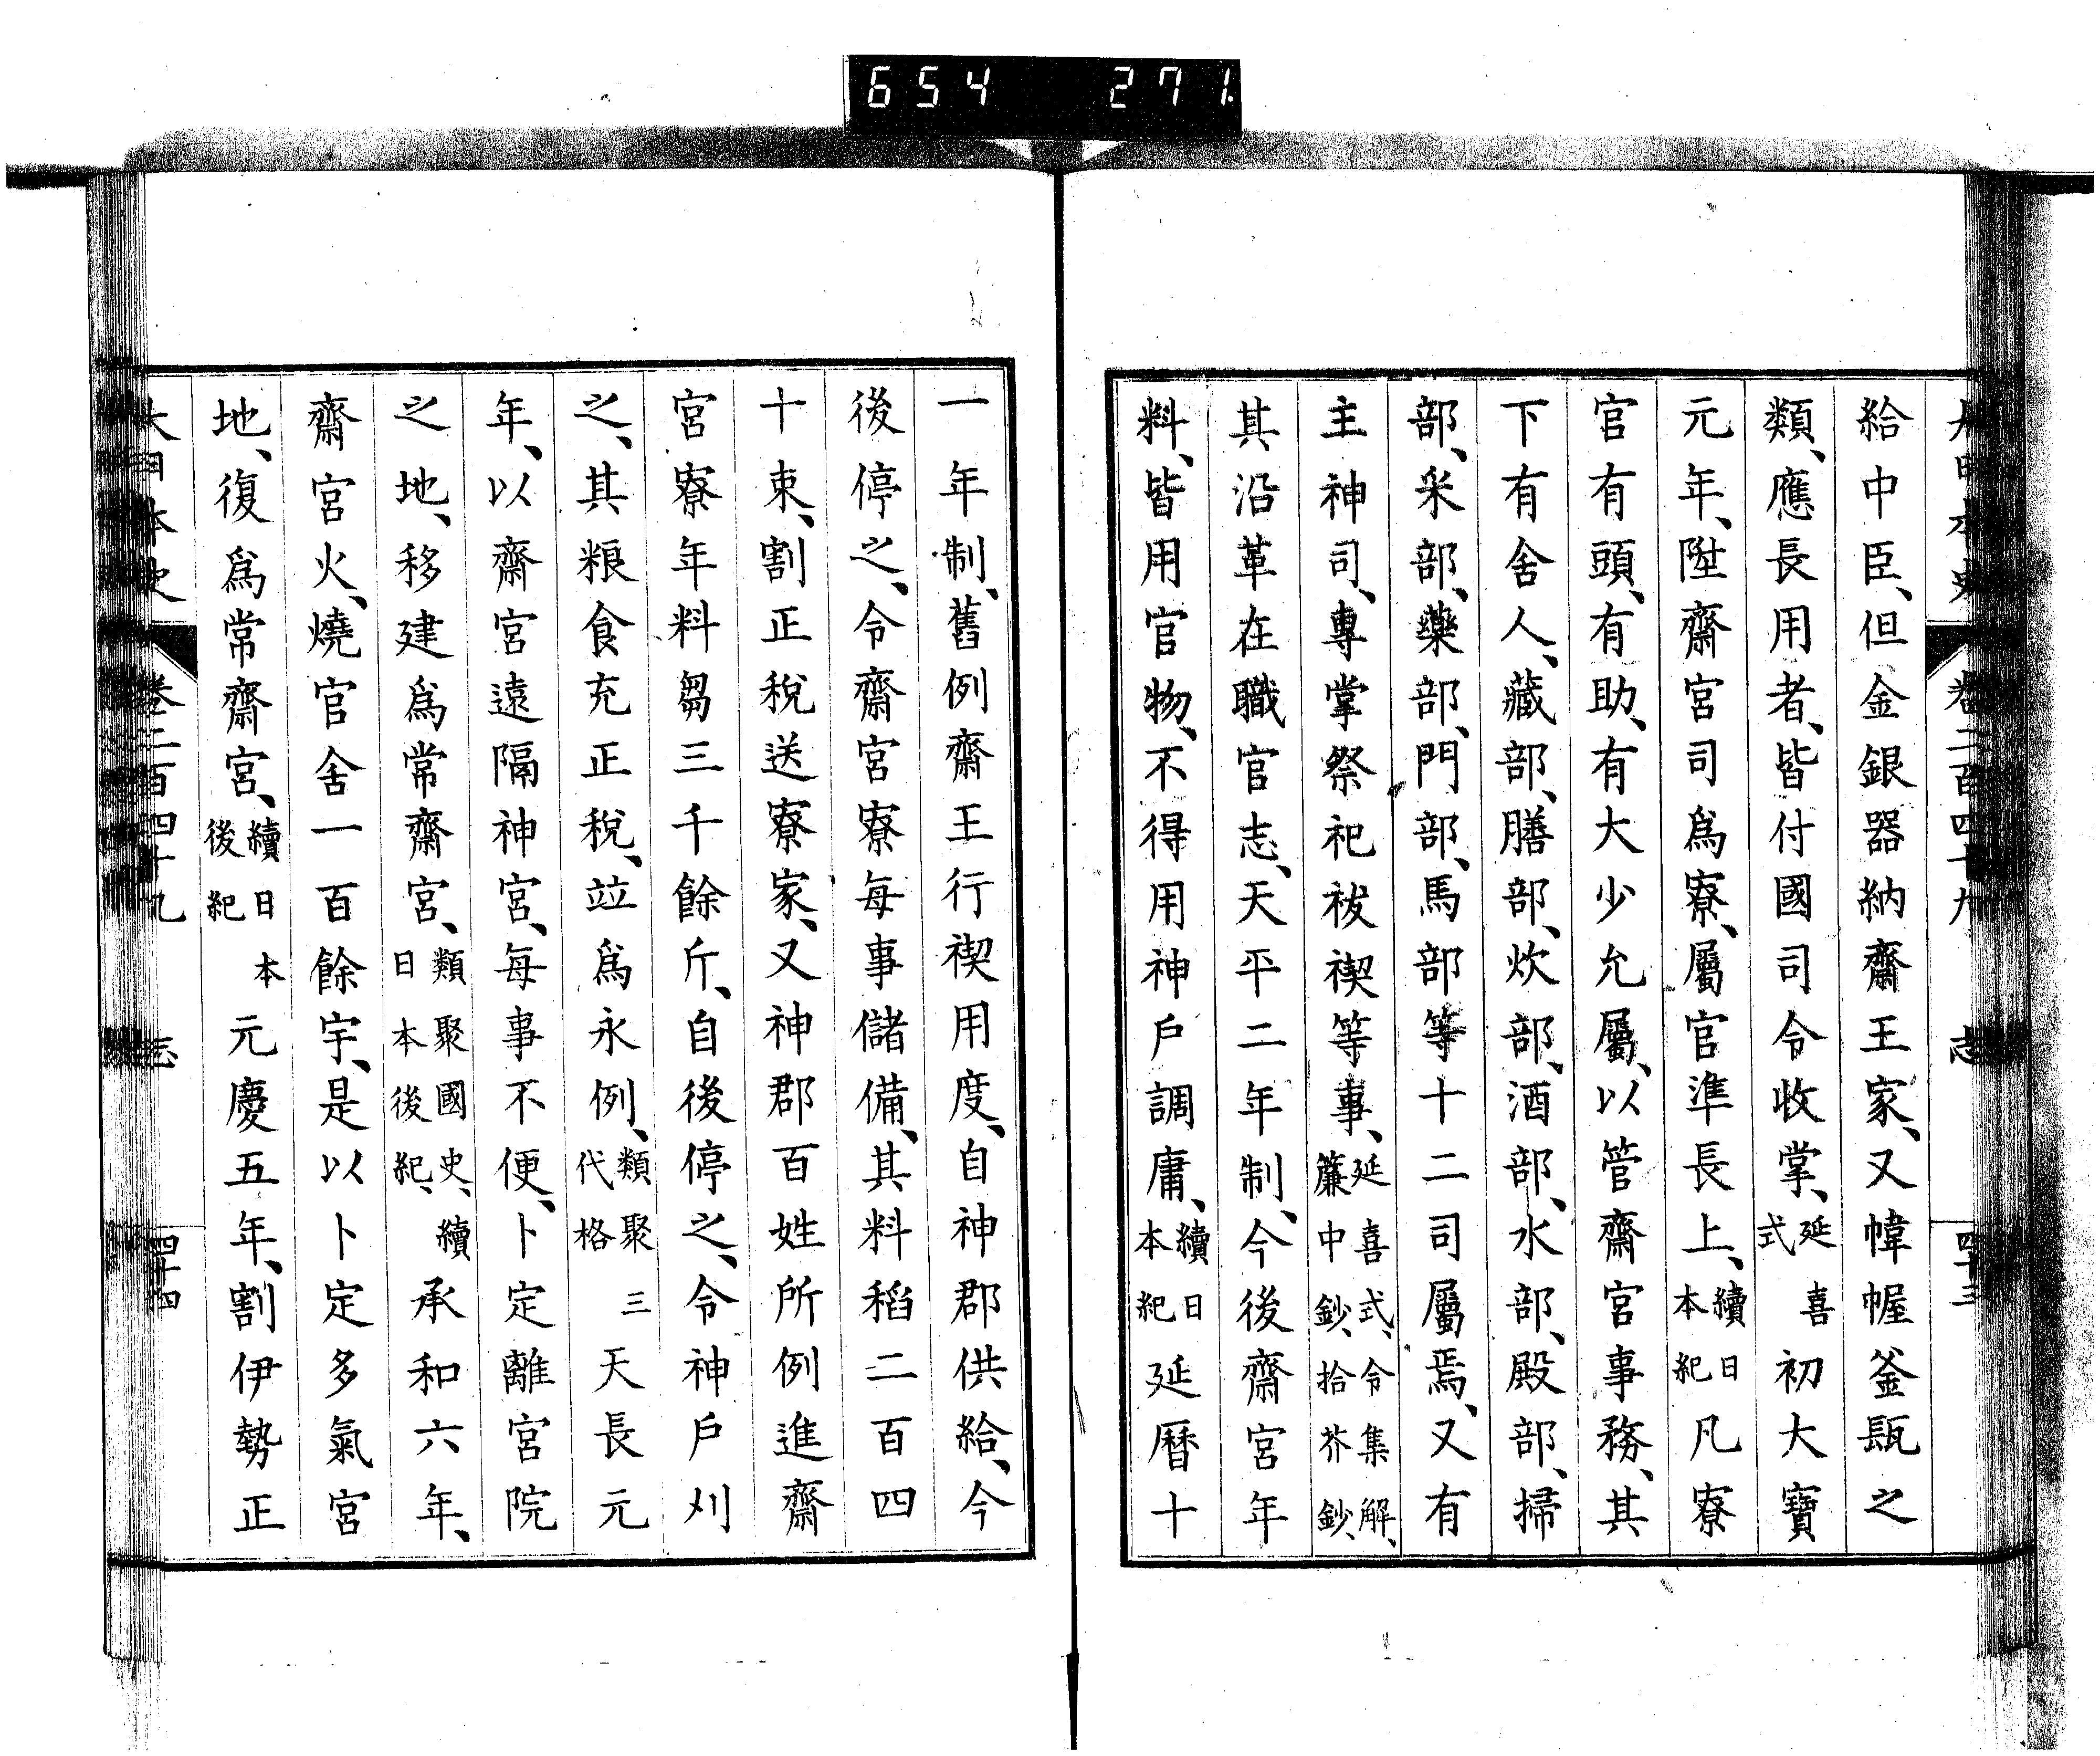 654 271.
大日本史 卷二百四十九 志 四十三
給中臣、但金銀器納齋王家、又幃幄釜瓺之
類、應長用者、皆付國司令收掌、延喜式初大寶
元年、陞齋宮司爲寮、屬官準長上、續日本紀凡寮
官有頭、有助、有大少允屬、以管齋宮事務、其
下有舍人、藏部、膳部、炊部、酒部、水部、殿部、掃
部、采部、藥部、門部、馬部等十二司屬焉、又有
主神司、專掌祭祀祓禊等事、延喜式、令集解、簾中鈔、拾芥鈔、
其沿革在職官志、天平二年制、今後齋宮年
料、皆用官物、不得用神戶調庸、續日本紀延曆十
一年制、舊例齋王行禊用度、自神郡供給、今
後停之、令齋宮寮每事儲備、其料稻二百四
十束、割正稅送寮家、又神郡百姓所例進齋
宮寮年料芻三千餘斤、自後停之、令神戶刈
之、其粮食充正稅、竝爲永例、類聚三代格天長元
年、以齋宮遠隔神宮、每事不便、卜定離宮院
之地、移建爲常齋宮、類聚國史、續日本後紀、承和六年、
齋宮火、燒官舍一百餘宇、是以卜定多氣宮
地、復爲常齋宮、續日本後紀元慶五年、割伊勢正
大日本史 卷二百四十九 志 四十四